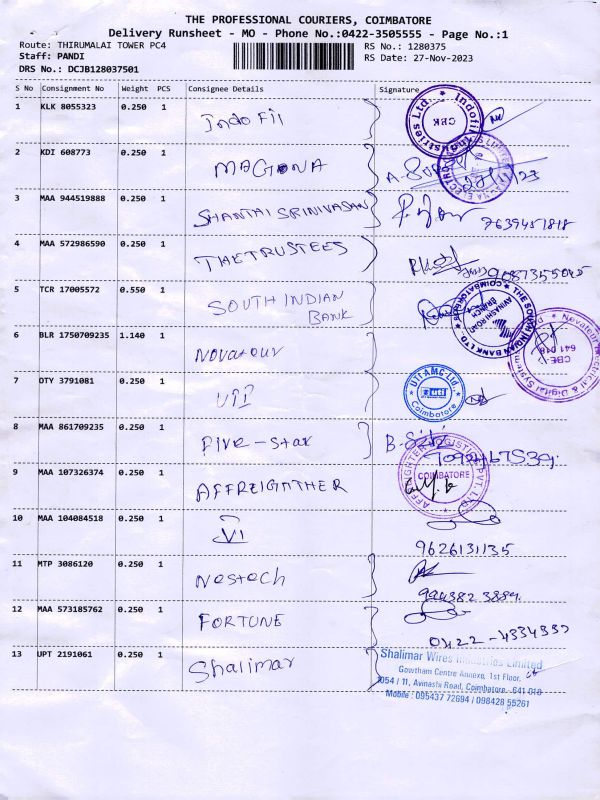 THE PROFESSIONAL COURIERS, COIMBATORE
Delivery Runsheet - MO - Phone No.:0422-3505555 - Page No.:1
Route: THIRUMALAI TOWER PC4 RS No.: 1280375
Staff: PANDI RS Date: 27-Nov-2023
DRS No.: DCJB128037501
S No Consignment No Weight PCS Consignee Details Signature
1 KLK 8055323 0.250 1 Indo Fil
Indofil Industries Ltd. CBE
2 KDI 608773 0.250 1 MAGONA
3 MAA 944519888 0.250 1 SHANTAI SRINIVASAN
4 MAA 572986590 0.250 1 THETRUSTEES
5 TCR 17005572 0.550 1 SOUTH INDIAN
BANK
THE SOUTH INDIAN BANK LTD COIMBATORE AVINASHI ROAD BRANCH
6 BLR 1750709235 1.140 1 Novatour
CBE- 641 018
7 DTY 3791081 0.250 1 UTI
UTI-AMC-Ltd., Coimbatore
8 MAA 861709235 0.250 1 Five-star
9 MAA 107326374 0.250 1 AFFREIGTHER
COIMBATORE
10 MAA 104084518 0.250 1 VI
9626131135
11 MTP 3086120 0.250 1 Nestech
12 MAA 573185762 0.250 1 FORTUNE
13 UPT 2191061 0.250 1 Shalimar
Shalimar Wires Industries Limited
Gowtham Centre Annexe, 1st Floor,
1054 / 11, Avinashi Road, Coimbatore - 641 018
Mobile : 095437 72694 / 098428 55261